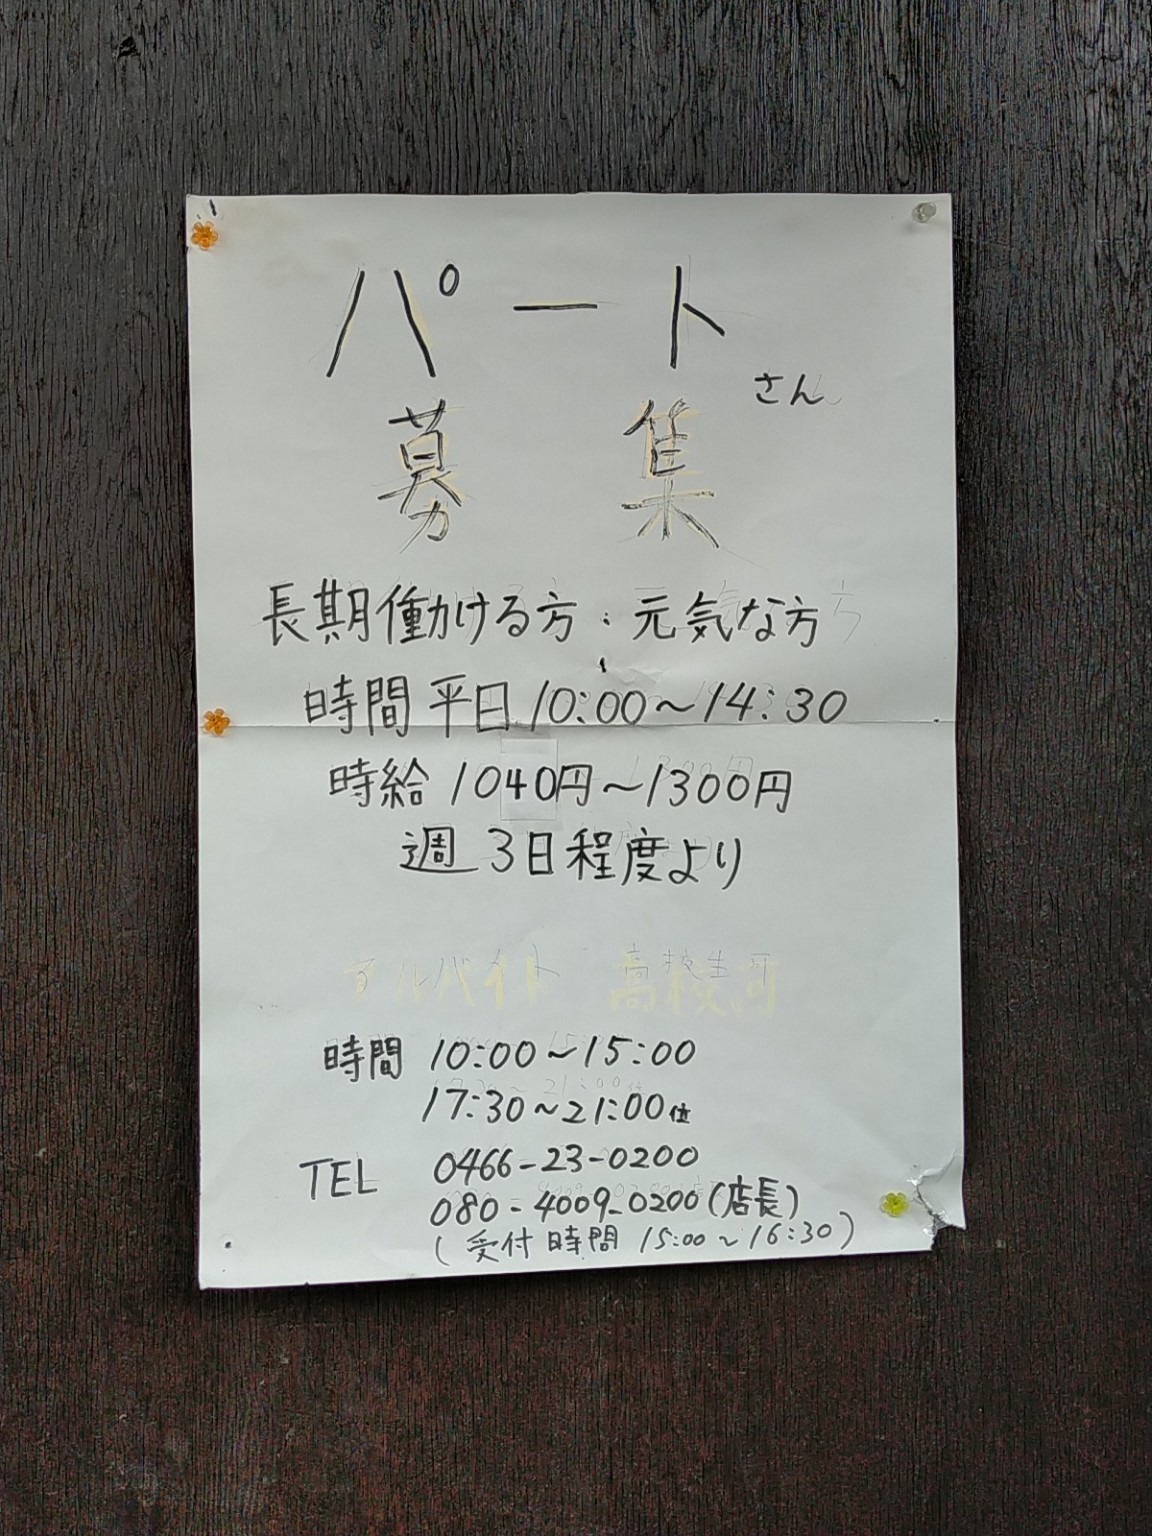 パート
さん
募集
長期働ける方：元気な方
時間 平日 10:00～14:30
時給 1040円～1300円
週 3日程度より
アルバイト 高校生可
時間 10:00～15:00
17:30～21:00位
TEL 0466-23-0200
080-4009-0200(店長)
(受付時間 15:00～16:30)